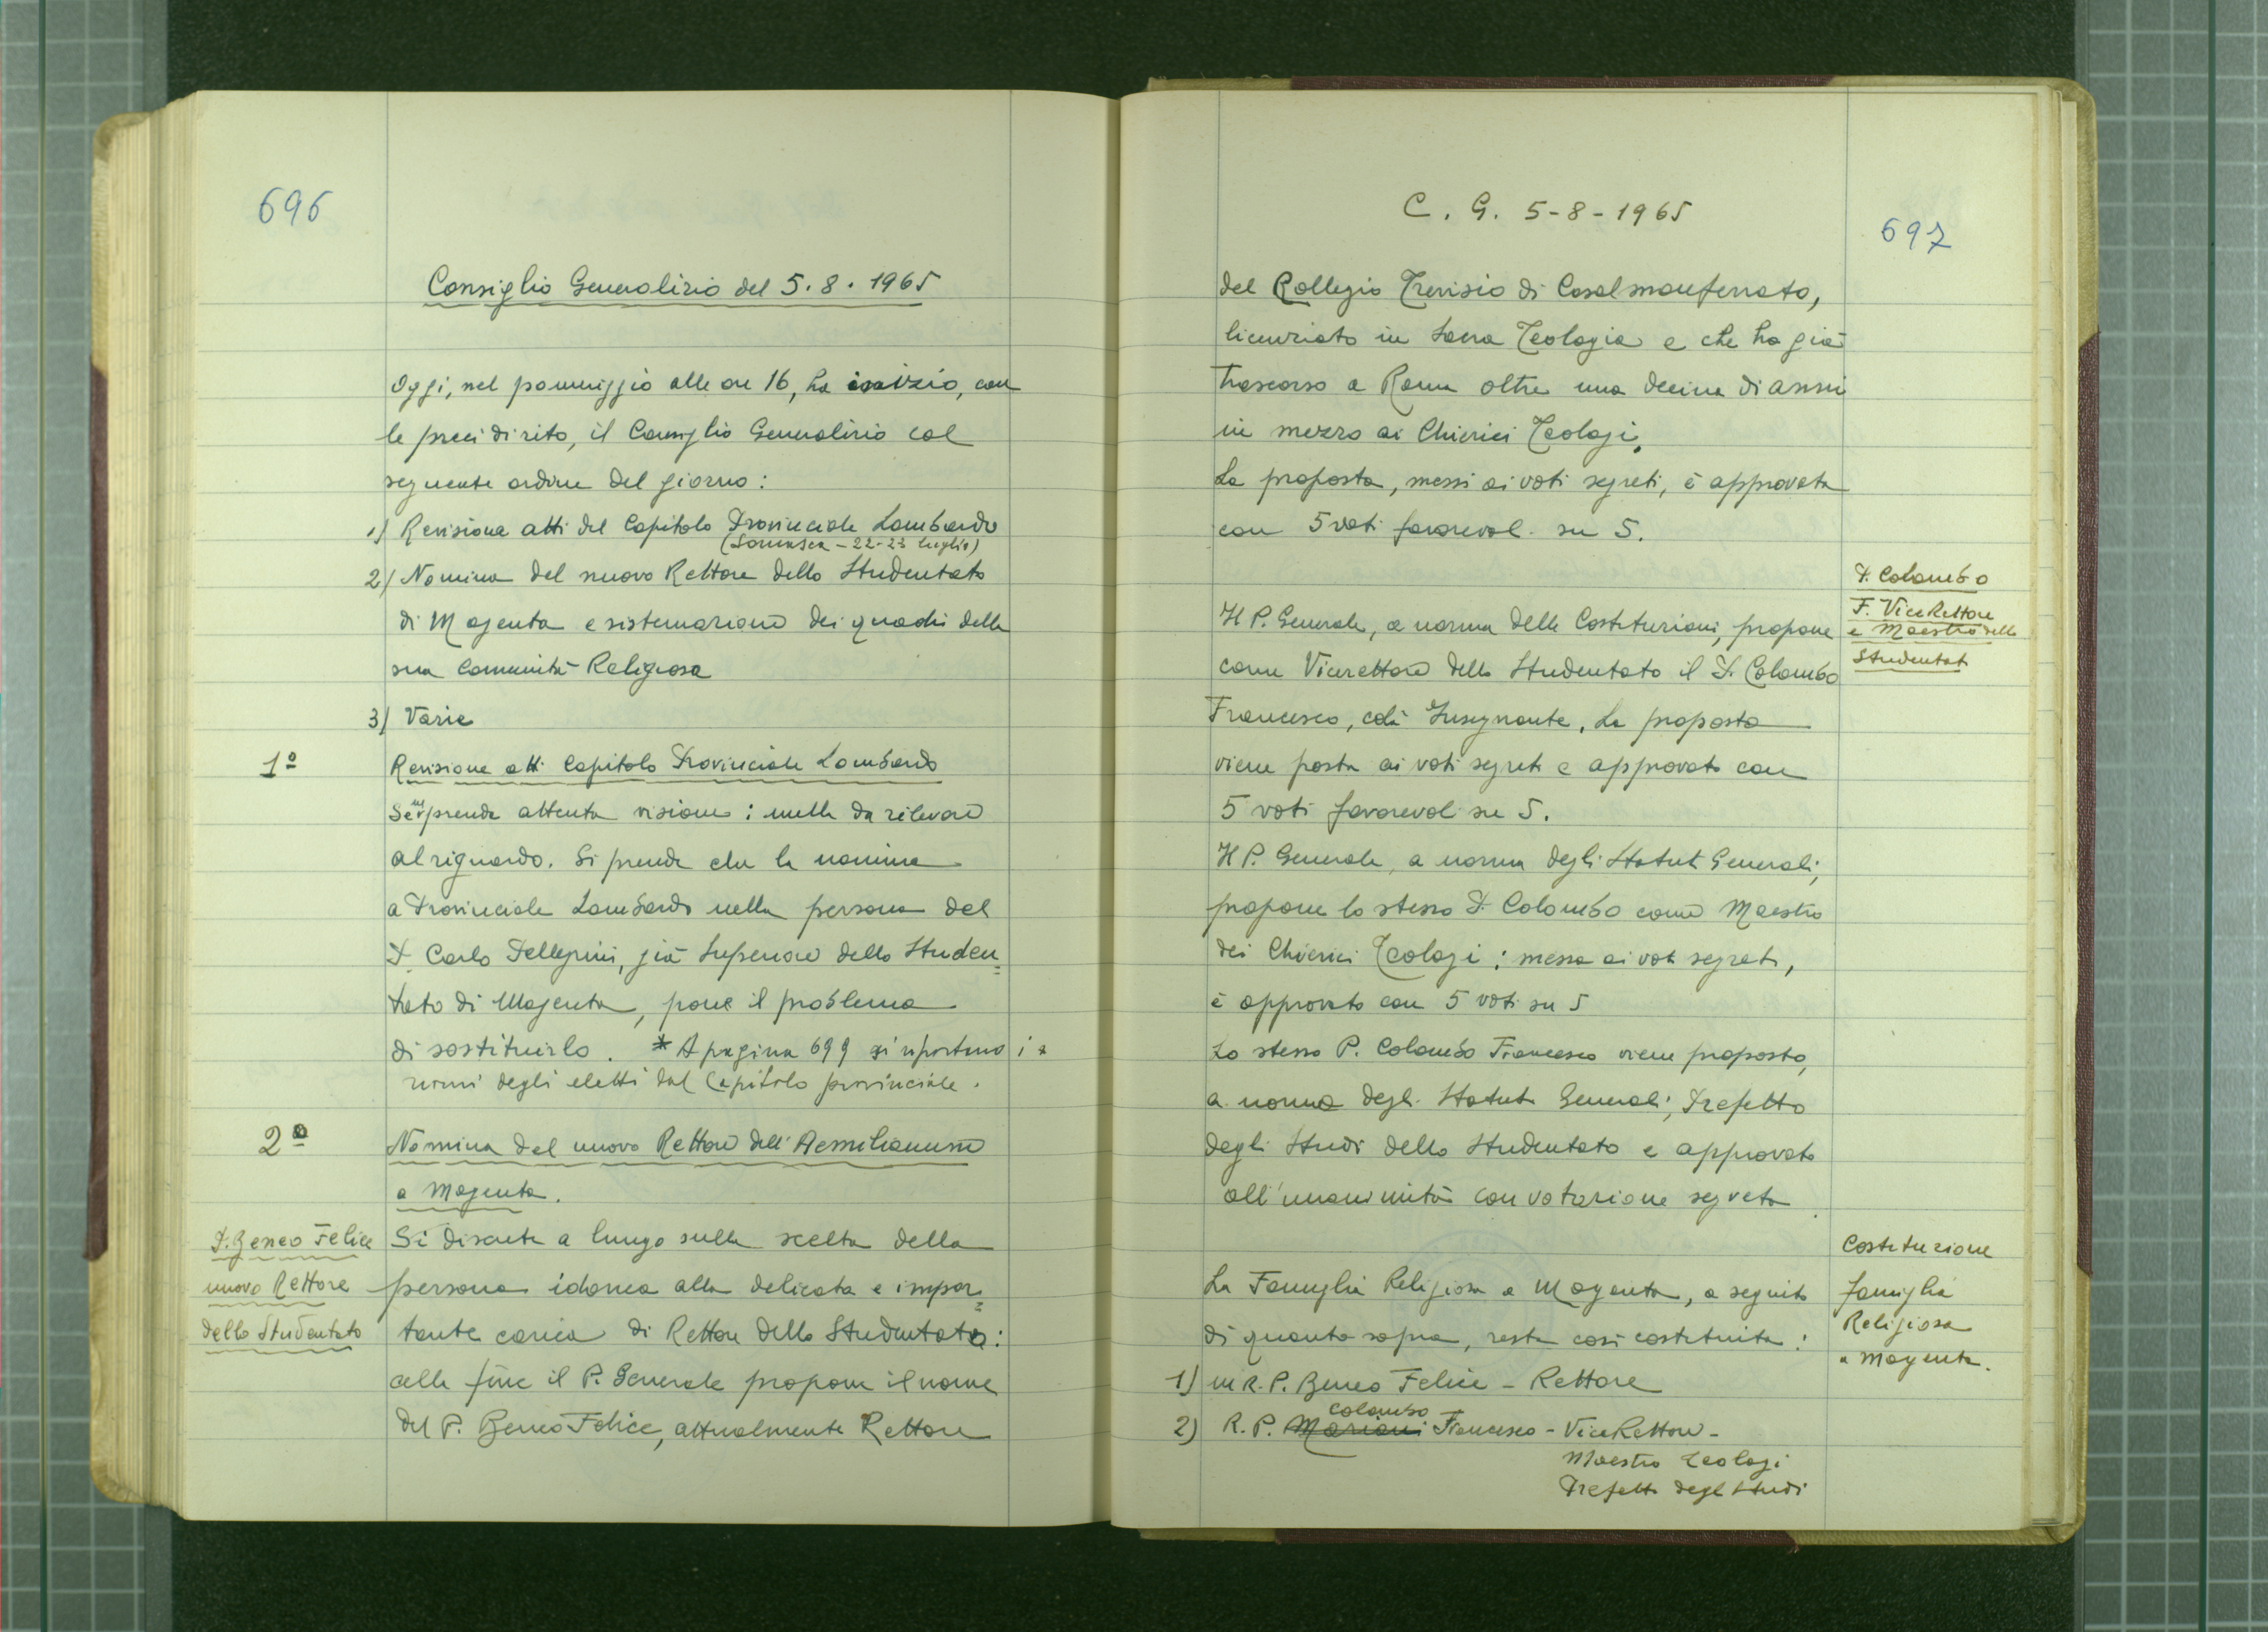 696
Consiglio Generalizio del 5.8.1965
Oggi, nel pomeriggio alle ore 16, ha inizio, con
le preci di rito, il Consiglio Generalizio col
seguente ordine del giorno:
1) Revisione atti del Capitolo Provinciale Lombardo
(Somasca - 22-23 luglio)
2) Nomina del nuovo Rettore dello Studentato
di Magenta e sistemazione dei quadri della
sua Comunità Religiosa
3) Varie
1º
Revisione atti Capitolo Provinciale Lombardo
Se ne prende attenta visione: nulla da rilevare
al riguardo. Si prende che la nomina
a Provinciale Lombardo nella persona del
P. Carlo Pellegrini, già Superiore dello Studen=
tato di Magenta, pone il problema
di sostituirlo. * A pagina 699 si riportano i *
nomi degli eletti dal Capitolo provinciale.
2º
Nomina del nuovo Rettore dell'Aemilianum
a Magenta.
P. Beneo Felice
nuovo Rettore
dello Studentato
Si discute a lungo sulla scelta della
persona idonea alla delicata e impor=
tante carica di Rettore dello Studentato:
alla fine il P. Generale propone il nome
del P. Beneo Felice, attualmente Rettore
C. G. 5-8-1965
697
del Collegio Trevisio di Casalmonferrato,
licenziato in Sacra Teologia e che ha già
trascorso a Roma oltre una decina di anni
in mezzo ai Chierici Teologi.
La proposta, messi ai voti segreti, è approvata
con 5 voti favorevoli su 5.
P. Colombo
F. ViceRettore
e Maestro dello
Studentato
Il P. Generale, a norma delle Costituzioni, propone
come Vicerettore dello Studentato il P. Colombo
Francesco, colà Insegnante. La proposta
viene posta ai voti segreti e approvata con
5 voti favorevoli su 5.
Il P. Generale, a norma degli Statuti Generali,
propone lo stesso P. Colombo come Maestro
dei Chierici Teologi: messa ai voti segreti,
è approvato con 5 voti su 5
Lo stesso P. Colombo Francesco viene proposto,
a norma degli Statuti Generali, Prefetto
degli Studi dello Studentato e approvato
all'unanimità con votazione segreta
Costituzione
famiglia
Religiosa
a Magenta.
La Famiglia Religiosa a Magenta, a seguito
di quanto sopra, resta così costituita:
1) M.R.P. Beneo Felice - Rettore
Colombo
2) R. P. Mariani Francesco - ViceRettore -
Maestro Teologi
Prefetto degli Studi